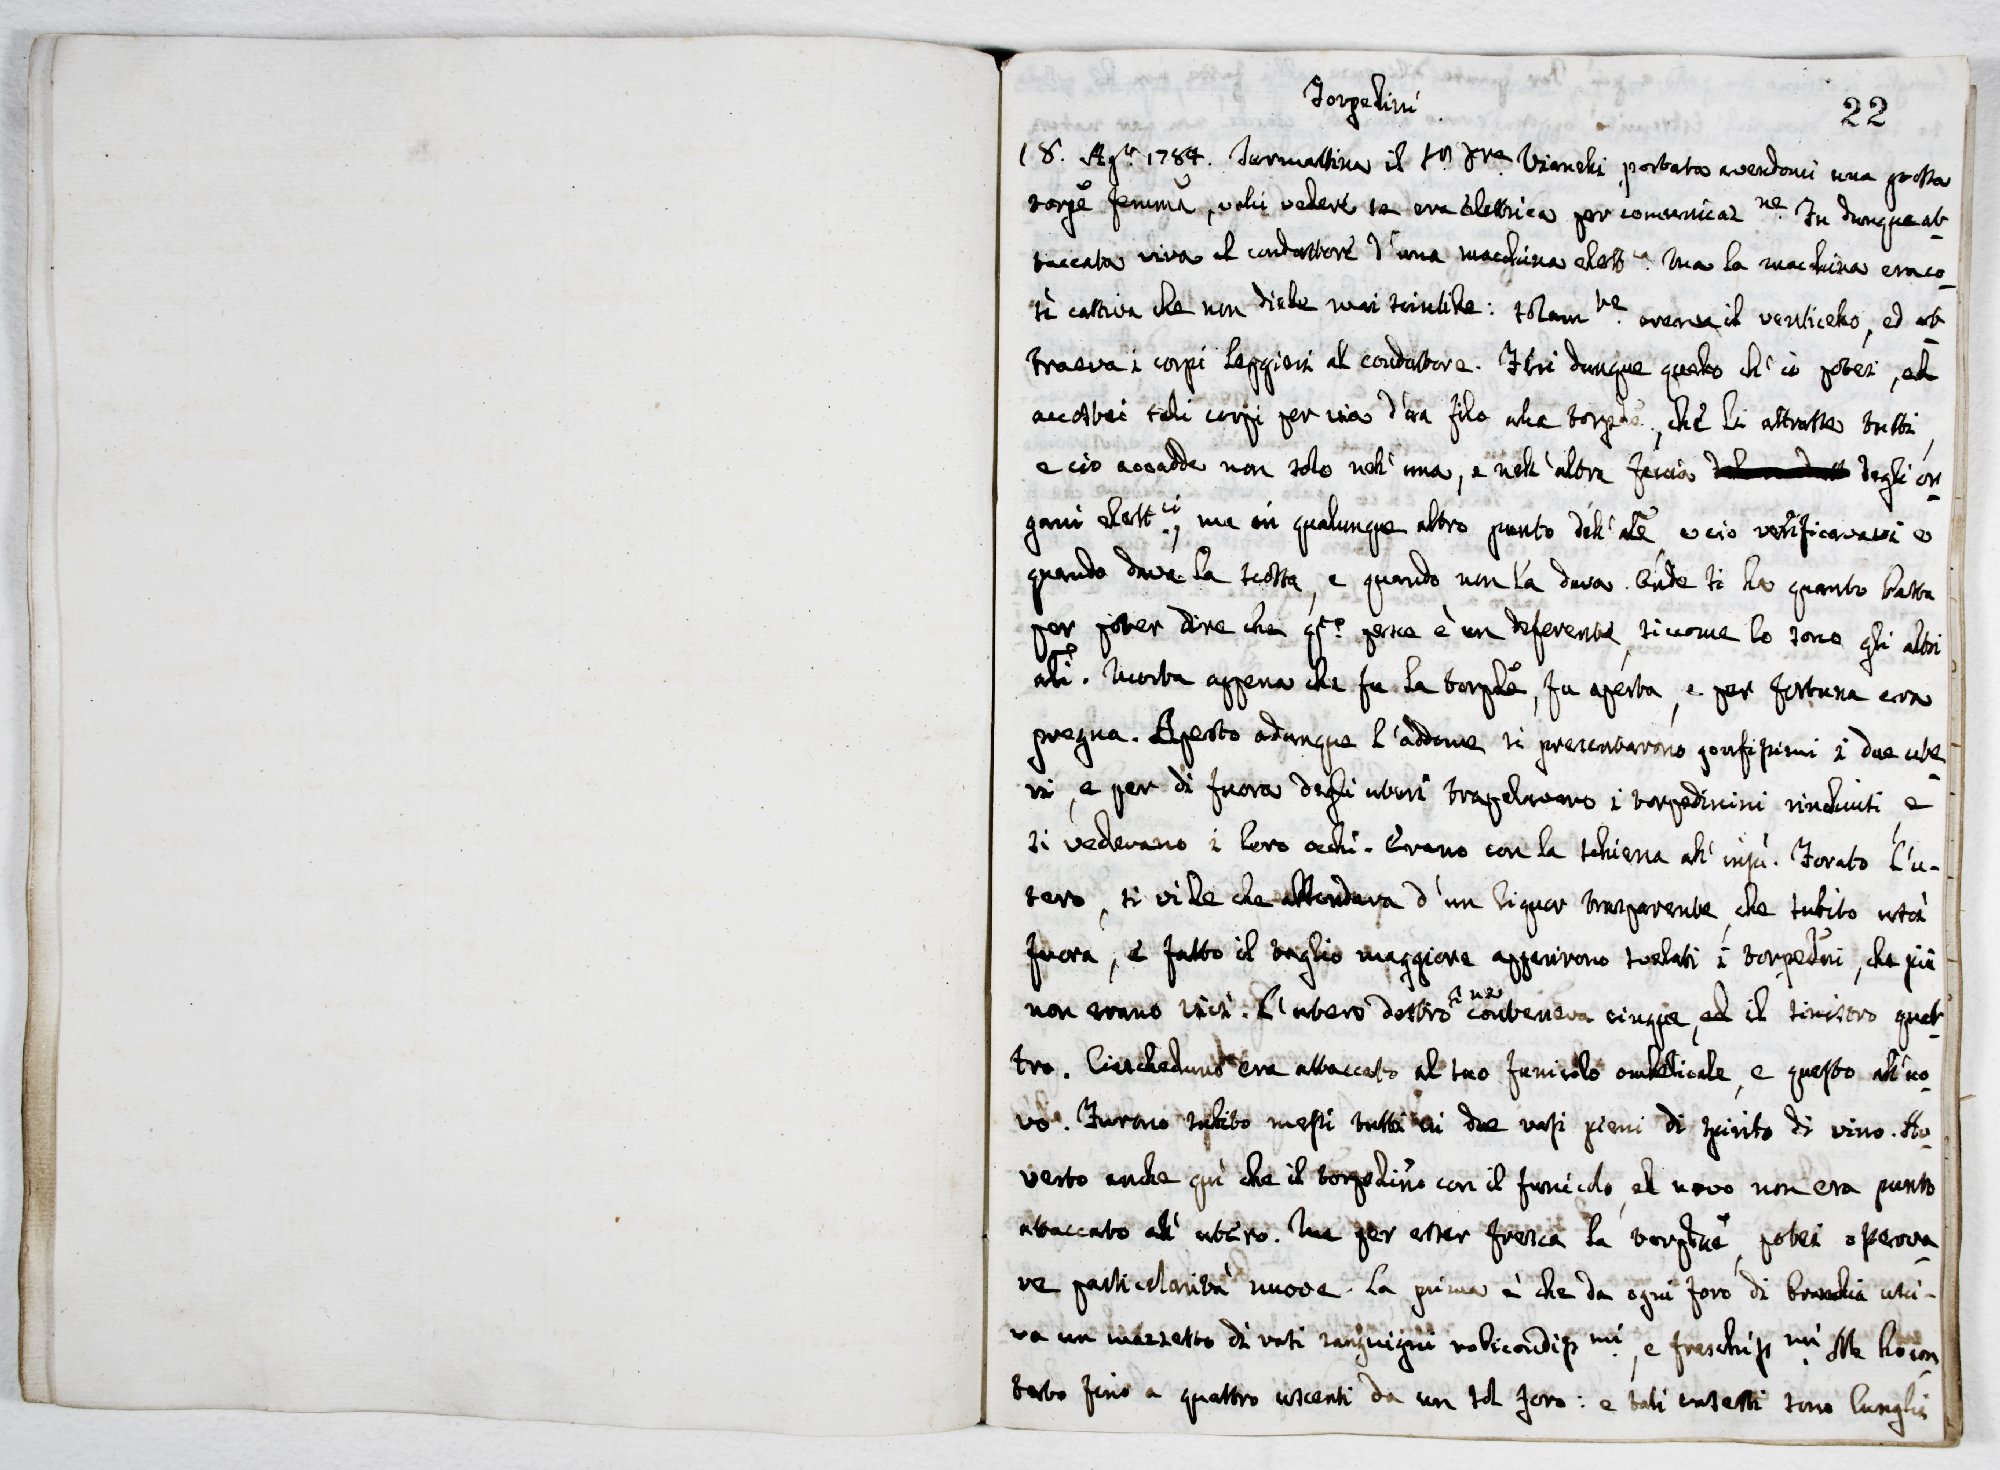 Torpedini
22
18. Ag.to 1784. Surmattina il Sr. Vianelli portata avendomi una grossa
torpe femina, volli vedere se era elettrica per comunicaz.ne Fu dunque at-
taccata viva al conduttore d'una macchina elett.ca Ma la macchina era co-
sì cattiva che non diede mai scintille: solam.te aveva il venticello, ed at-
traeva i corpi leggieri al conduttore. Feci dunque quello ch'io potei, ed
accostai tali corpi per via d'un filo alla torpe., che li attrasse tutti,
e ciò accadde non solo nell'una, e nell'altra faccia degli or-
gani elett.ci, ma in qualunque altro punto dell'ale e ciò verificavasi e
quando dava la scossa, e quando non la dava. Onde si ha quanto basta
per poter dire che qsto. pesce è un deferente, siccome lo sono gli altri
ali. Morta appena che fu la torpe, fu aperta, e per fortuna era
pregna. Aperto adunque l'addome si presentarono gonfissimi i due ute-
ri, e per di fuora degli uteri trapelavano i torpedinini rinchiusi, e
si vedevano i loro occhi. Erano con la schiena all'insù. Forato l'u-
tero, si vide che abbondava d'un liquor trasparente, che subito uscì
fuora, e fatto il taglio maggiore apparirono svelati i torpedini, che più
non erano vivi. L'utero destro ne conteneva cinque, ed il sinistro quat-
tro. Ciascheduno era attaccato al suo funicolo ombelicale, e questo all'uo-
vo. Furono subito messi tutti in due vasi pieni di spirito di vino. Av-
verto anche qui che il torpedino con il funicolo, ed uovo non era punto
attaccato all'utero. Ma per esser fresca la torpe, potei osserva-
re particolarità nuove. La prima è che da ogni foro di branchia usci-
va un mazzetto di vasi sanguigni rubicondiss.mi, e freschiss.mi Ne ho con-
tato fino a quattro uscenti da un sol foro: e tali vasetti sono lunghi